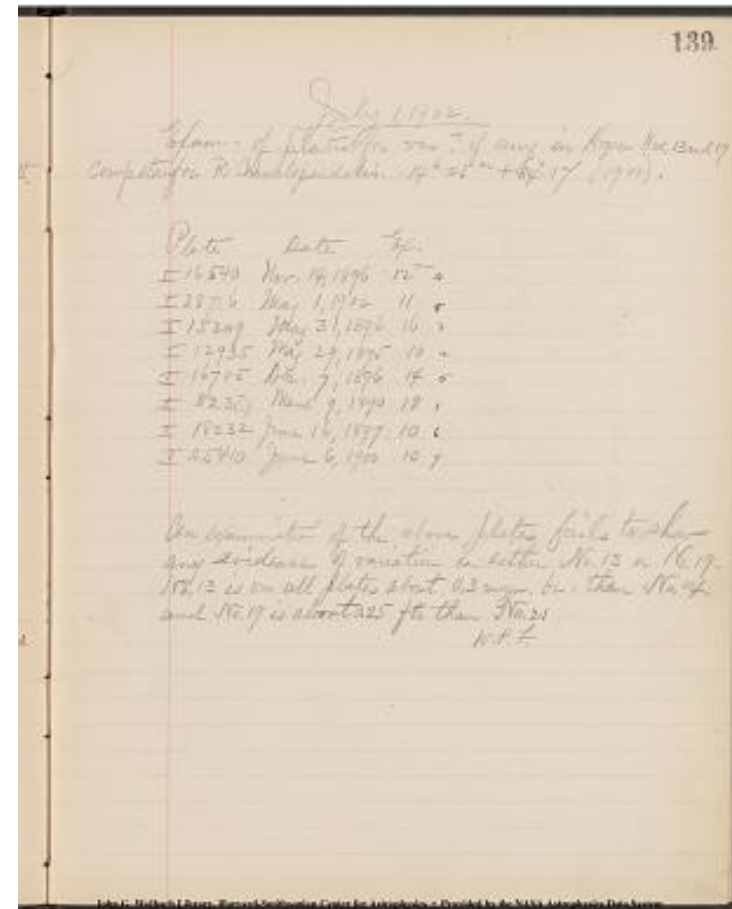 139
July 1, 1902.
Exam. of plates for var. if any in Hagen No. 13 and 19
Comp. stars for R Camelopardalis. 14h 25m + 84° 17' (1900).
Plate Date Ex.
I 16540 Nov. 14, 1896 12m
I 28716 May 1, 1902 11
I 15209 May 31, 1896 16
I 12935 May 29, 1895 10
I 16705 Dec. 9, 1896 14
I Mar. 9, 18
I 18232 June 16, 1897 10
I 25410 June 6, 1900 10
An examination of the above plates fails to show
any evidence of variation in either No. 13 or 19.
No. 13 is on all plates about 0.3 magn. br. than No.
and No. 19 is about 0.25 ft. than No. 21
W.P.F.
John G. Wolbach Library, Harvard-Smithsonian Center for Astrophysics • Provided by the NASA Astrophysics Data System